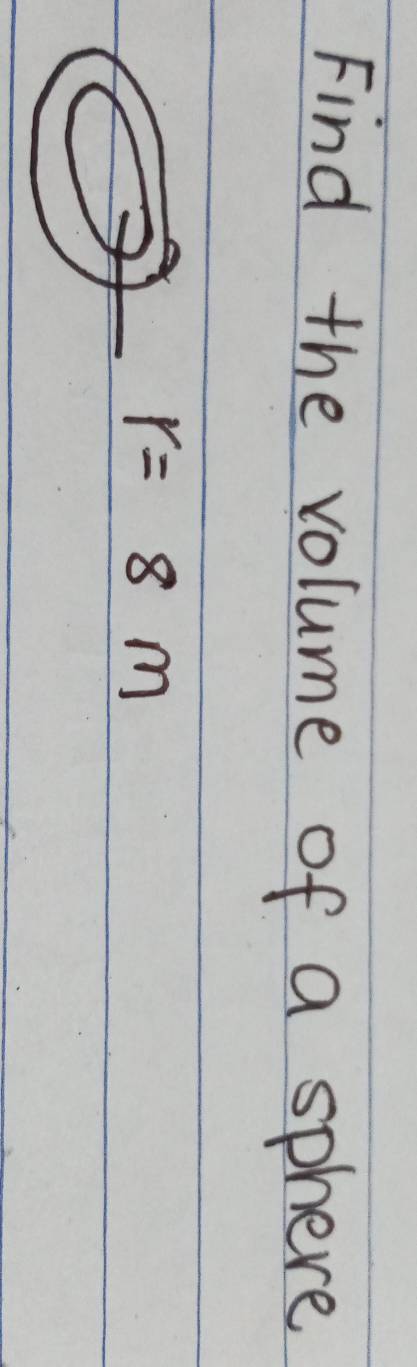 Find the volume of a sphere
r = 8 m